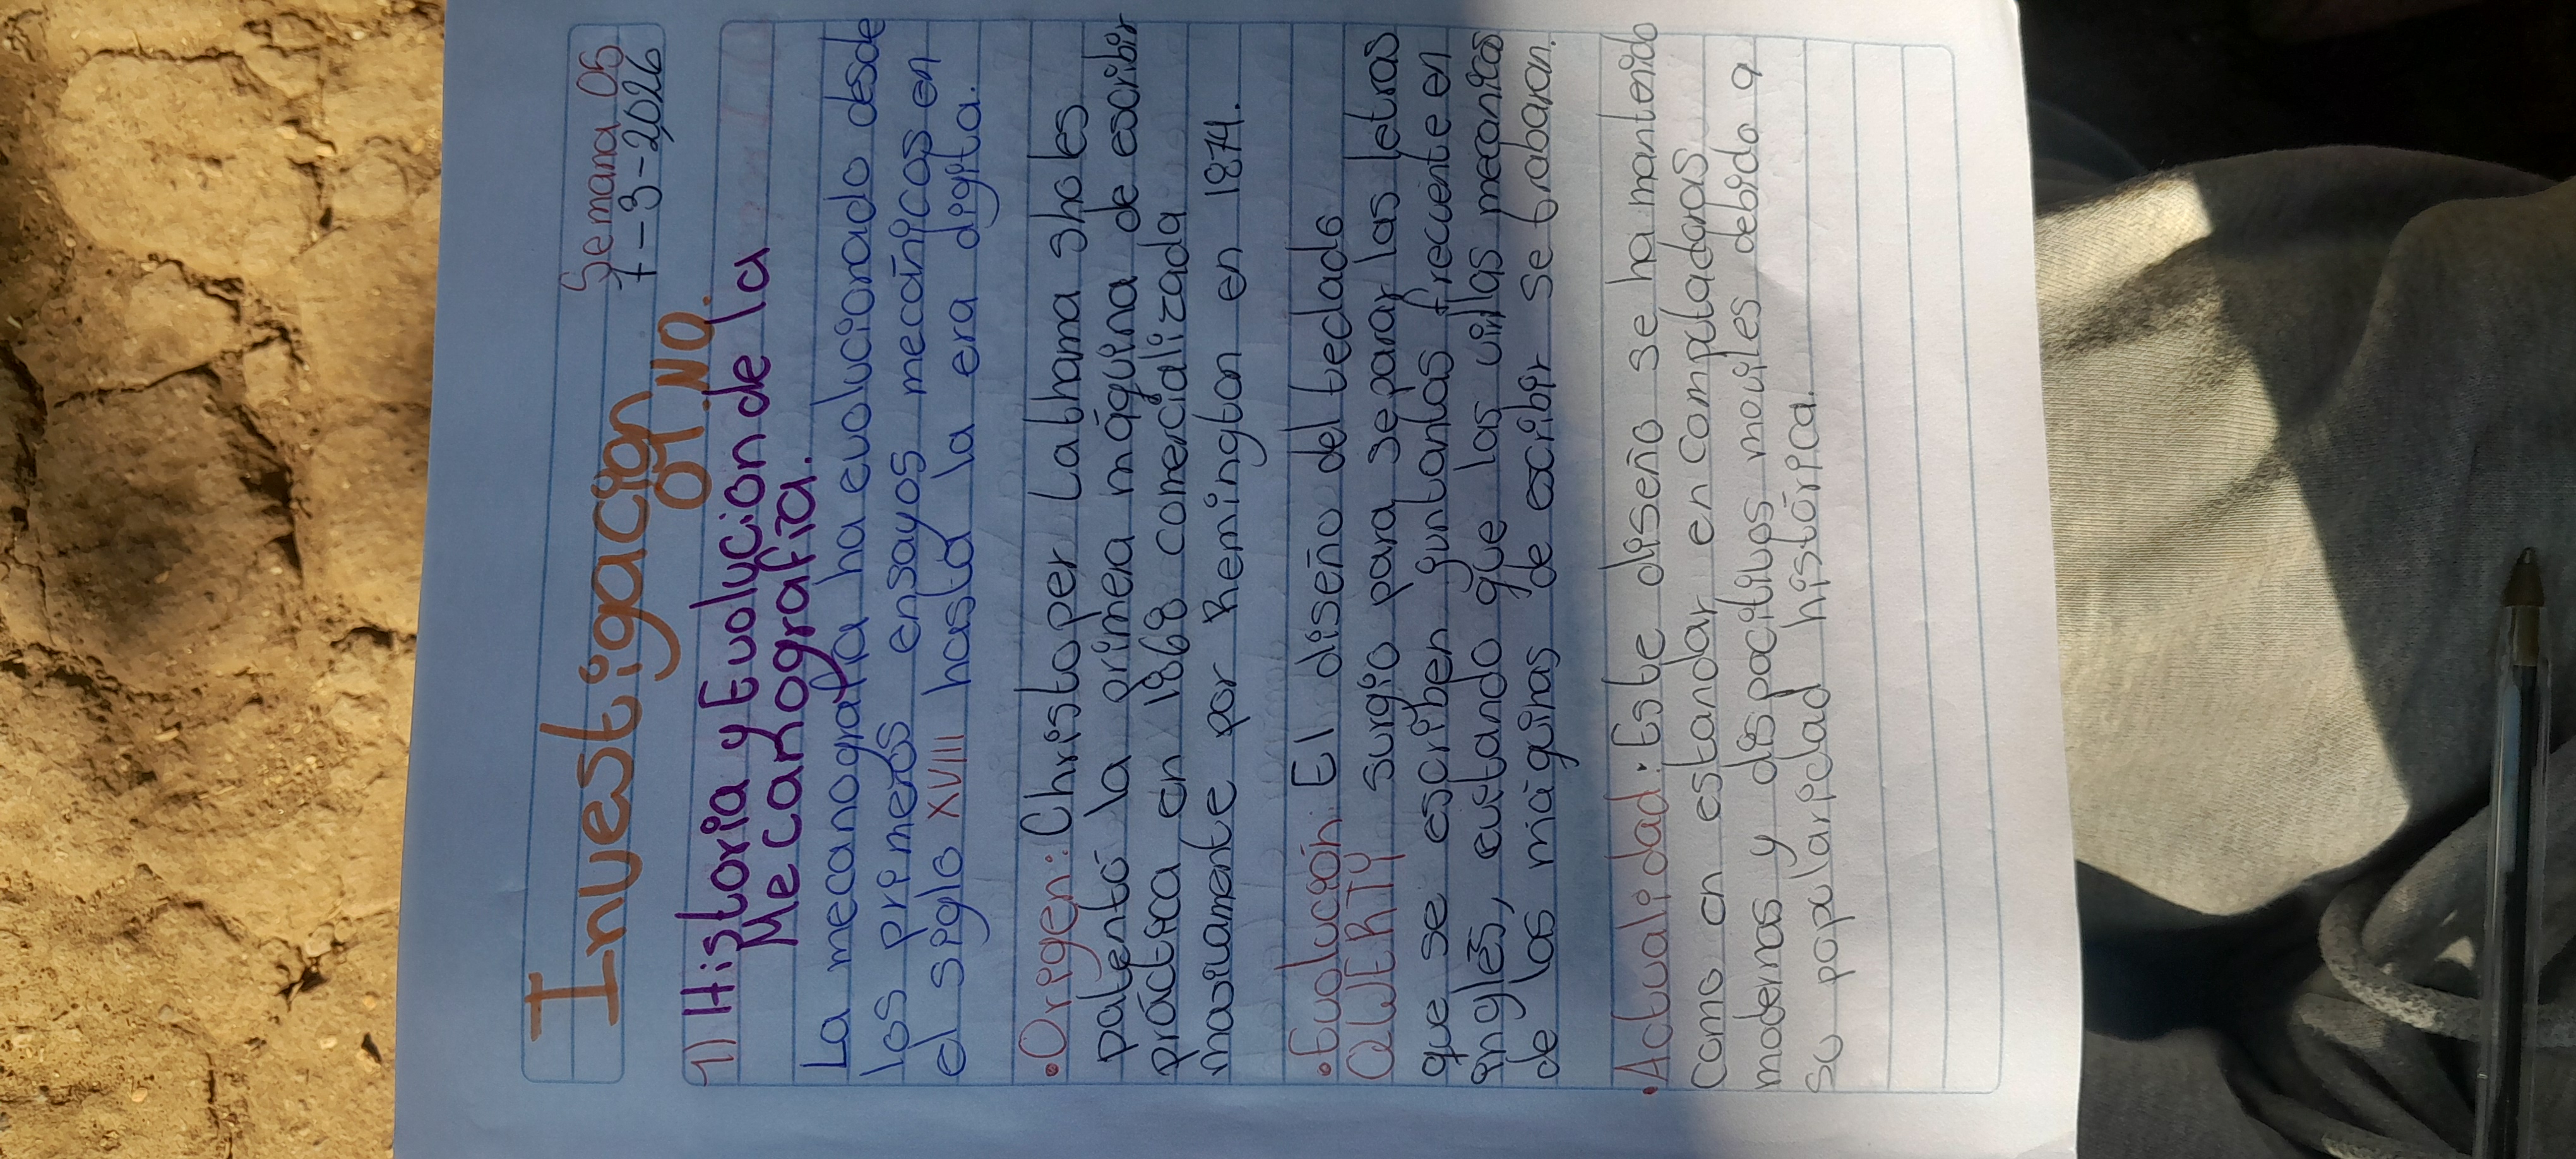 Semana 05
7-3-2026
Investigacion
01.NO.
1) Historia y Evolucion de la
Mecanografía.
La mecanografía ha evolucionado desde
los primeros ensayos mecánicos en
el siglo XVIII hasta la era digita.
• Origen: Christoper Lathama sholes
patentó la primera máquina de escribir
práctica en 1868 comercializada
masivamente por Remington en 1874.
• Evolución El diseño del teclado
QWERTY surgio para separar las letras
que se escriben juntantas frecuente en
inglés, evitando que las
de las máquinas de escribir se trabaran.
• Actualidad: Este diseño se ha mantenido
como en estandar en computadoras
modernas y dispocitivos moviles debido a
su popularidad histórica.